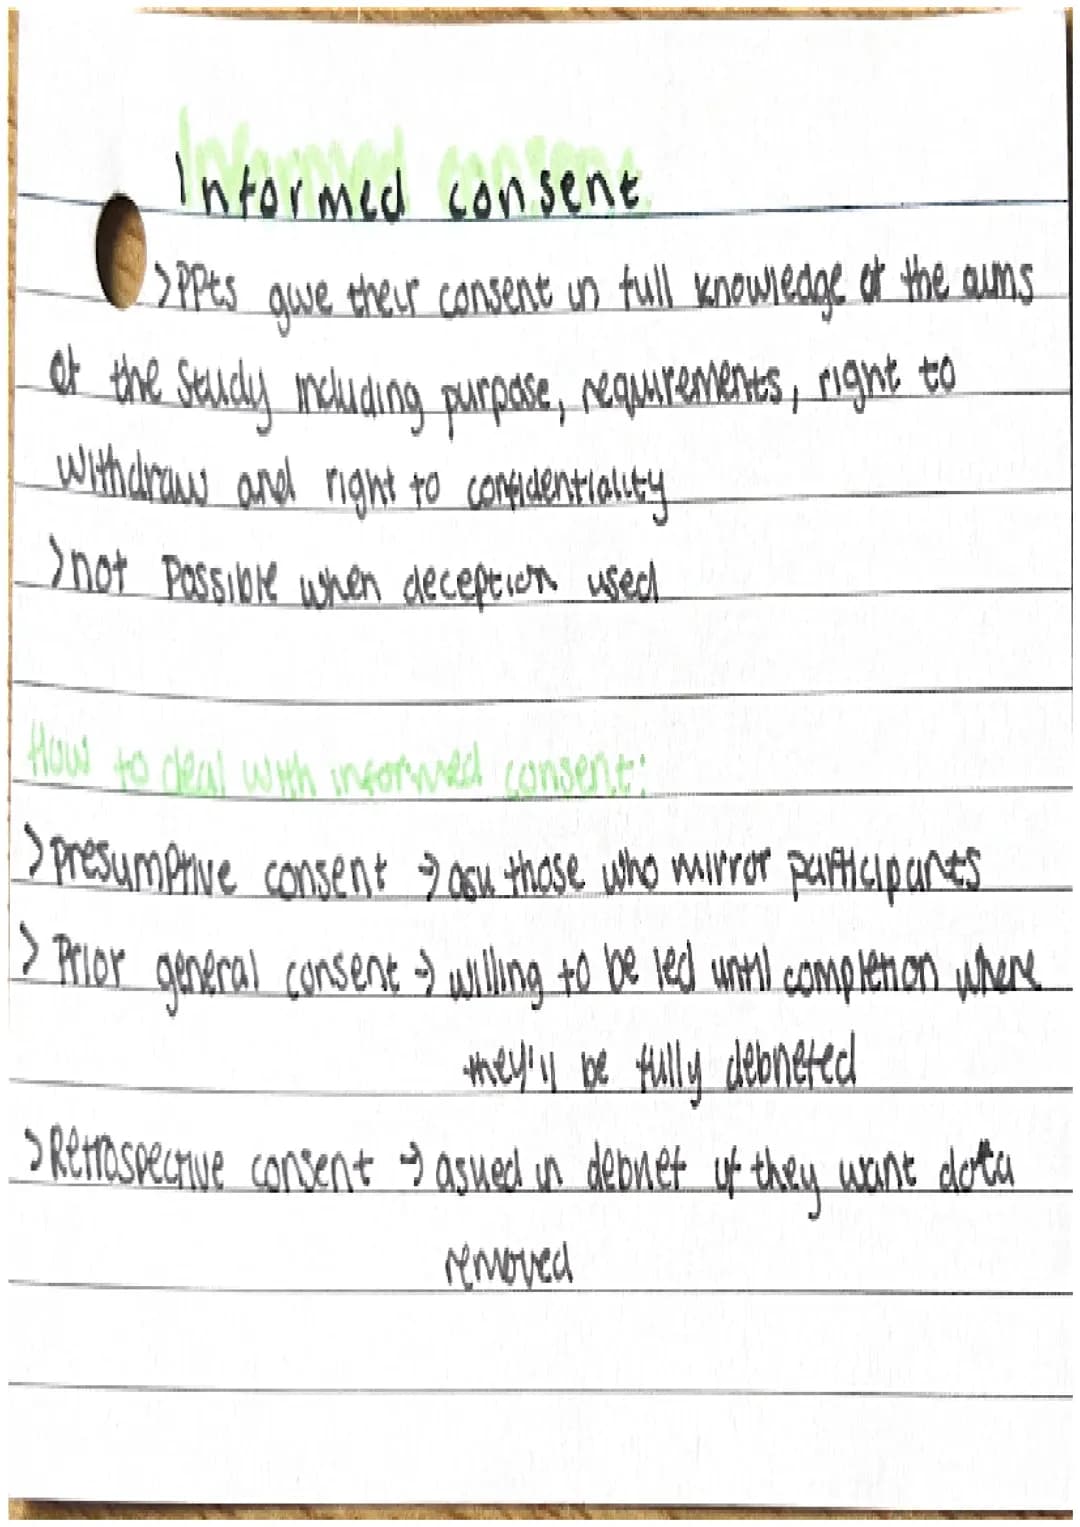 Informed consent
>PPts give their consent in full knowledge of the aims
of the study including purpose, requirements, right to
withdraw and right to confidentiality
>not possible when deception used
How to deal with informed consent:
>presumptive consent → ask those who mirror participants
> Prior general consent → willing to be led until completion where
they'll be fully debriefed
>Retrospective consent → asked in debrief if they want data
removed